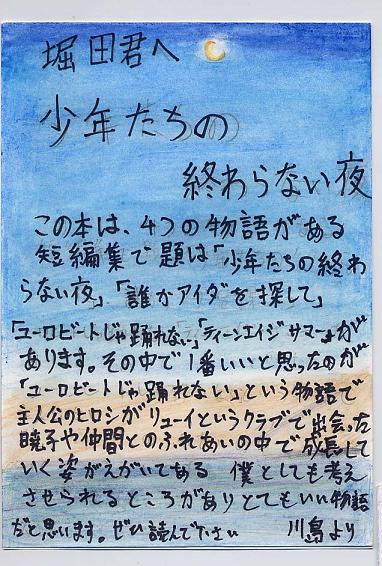 堀田君へ
少年たちの
終わらない夜
この本は、4つの物語がある
短編集で題は「少年たちの終わ
らない夜」、「誰かアイダを探して」
「ユーロビートじゃ踊れない」「ティーンエイジサマー」が
あります。その中で1番いいと思ったのが
「ユーロビートじゃ踊れない」という物語で
主人公のヒロシがリューイというクラブで出会った
暁子や仲間とのふれあいの中で成長して
いく姿がえがいてある 僕としても考え
させられるところがありとてもいい物語
だと思います。ぜひ読んで下さい 川島より